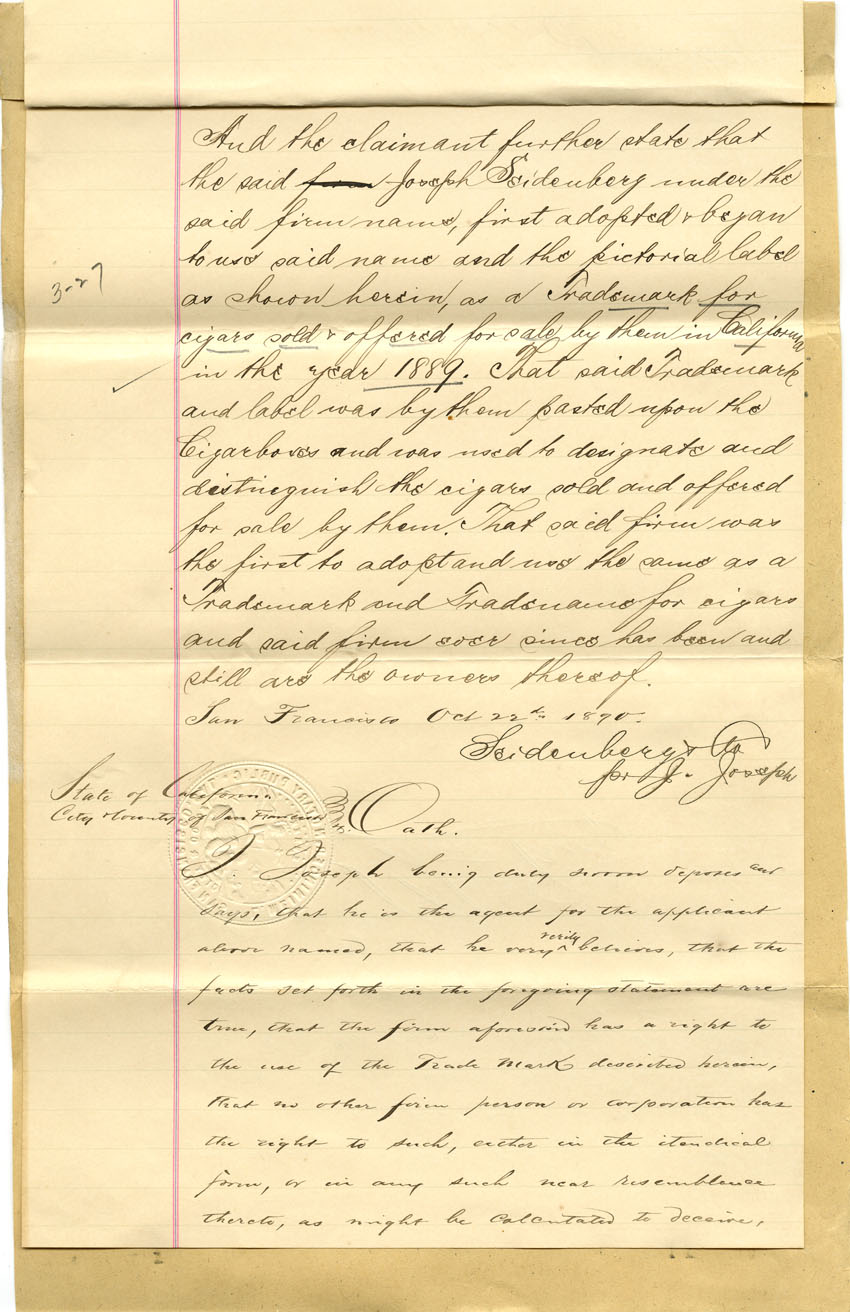 And the claimant further state that
the said firm Joseph Seidenberg under the
said firm name, first adopted & began
to use said name and the pictorial label
3-27
as shown herein, as a Trademark for
cigars sold & offered for sale by them in California
in the year 1889. That said Trademark
and label was by them pasted upon the
Cigarboxes and was used to designate and
distinguish the cigars sold and offered
for sale by them. That said firm was
the first to adopt and use the same as a
Trademark and Tradename for cigars
and said firm ever since has been and
still are the owners thereof.
San Francisco Oct 22th 1890.
Seidenberg & Co
pr J. Joseph
State of California
City & County of San Francisco
Oath.
J. Joseph being duly sworn deposes and
says, that he is the agent for the applicant
above named, that he very verily believes, that the
facts set forth in the foregoing statement are
true, that the firm aforesaid has a right to
the use of the Trade Mark described herein,
that no other firm person or corporation has
the right to such, either in the itendical
form, or in any such near resemblence
thereto, as might be calculated to deceive,